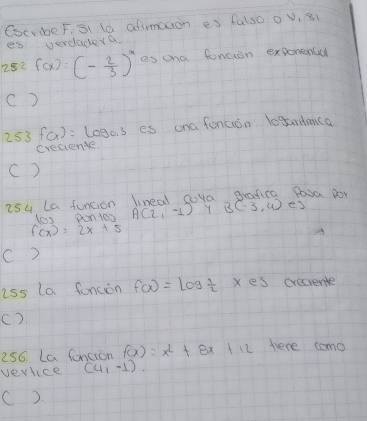 Escribe F, si la afirmación es falso o V, si
es verdadera.
252 f(x): (- 2/3)^x es una función exponencial
( )
253 f(x): Log0.5 es una función logarítmica
creciente
( )
254 La función lineal cuya grafica pasa por
los puntos A(2, -1) y B(-3, 4) es
f(x) = 2x + 5
( )
255 La función f(x) = log 1/2 x es creciente
( ).
256. La función f(x) = x² + 8x + 12 tiene como
vertice (4, -1).
( ).